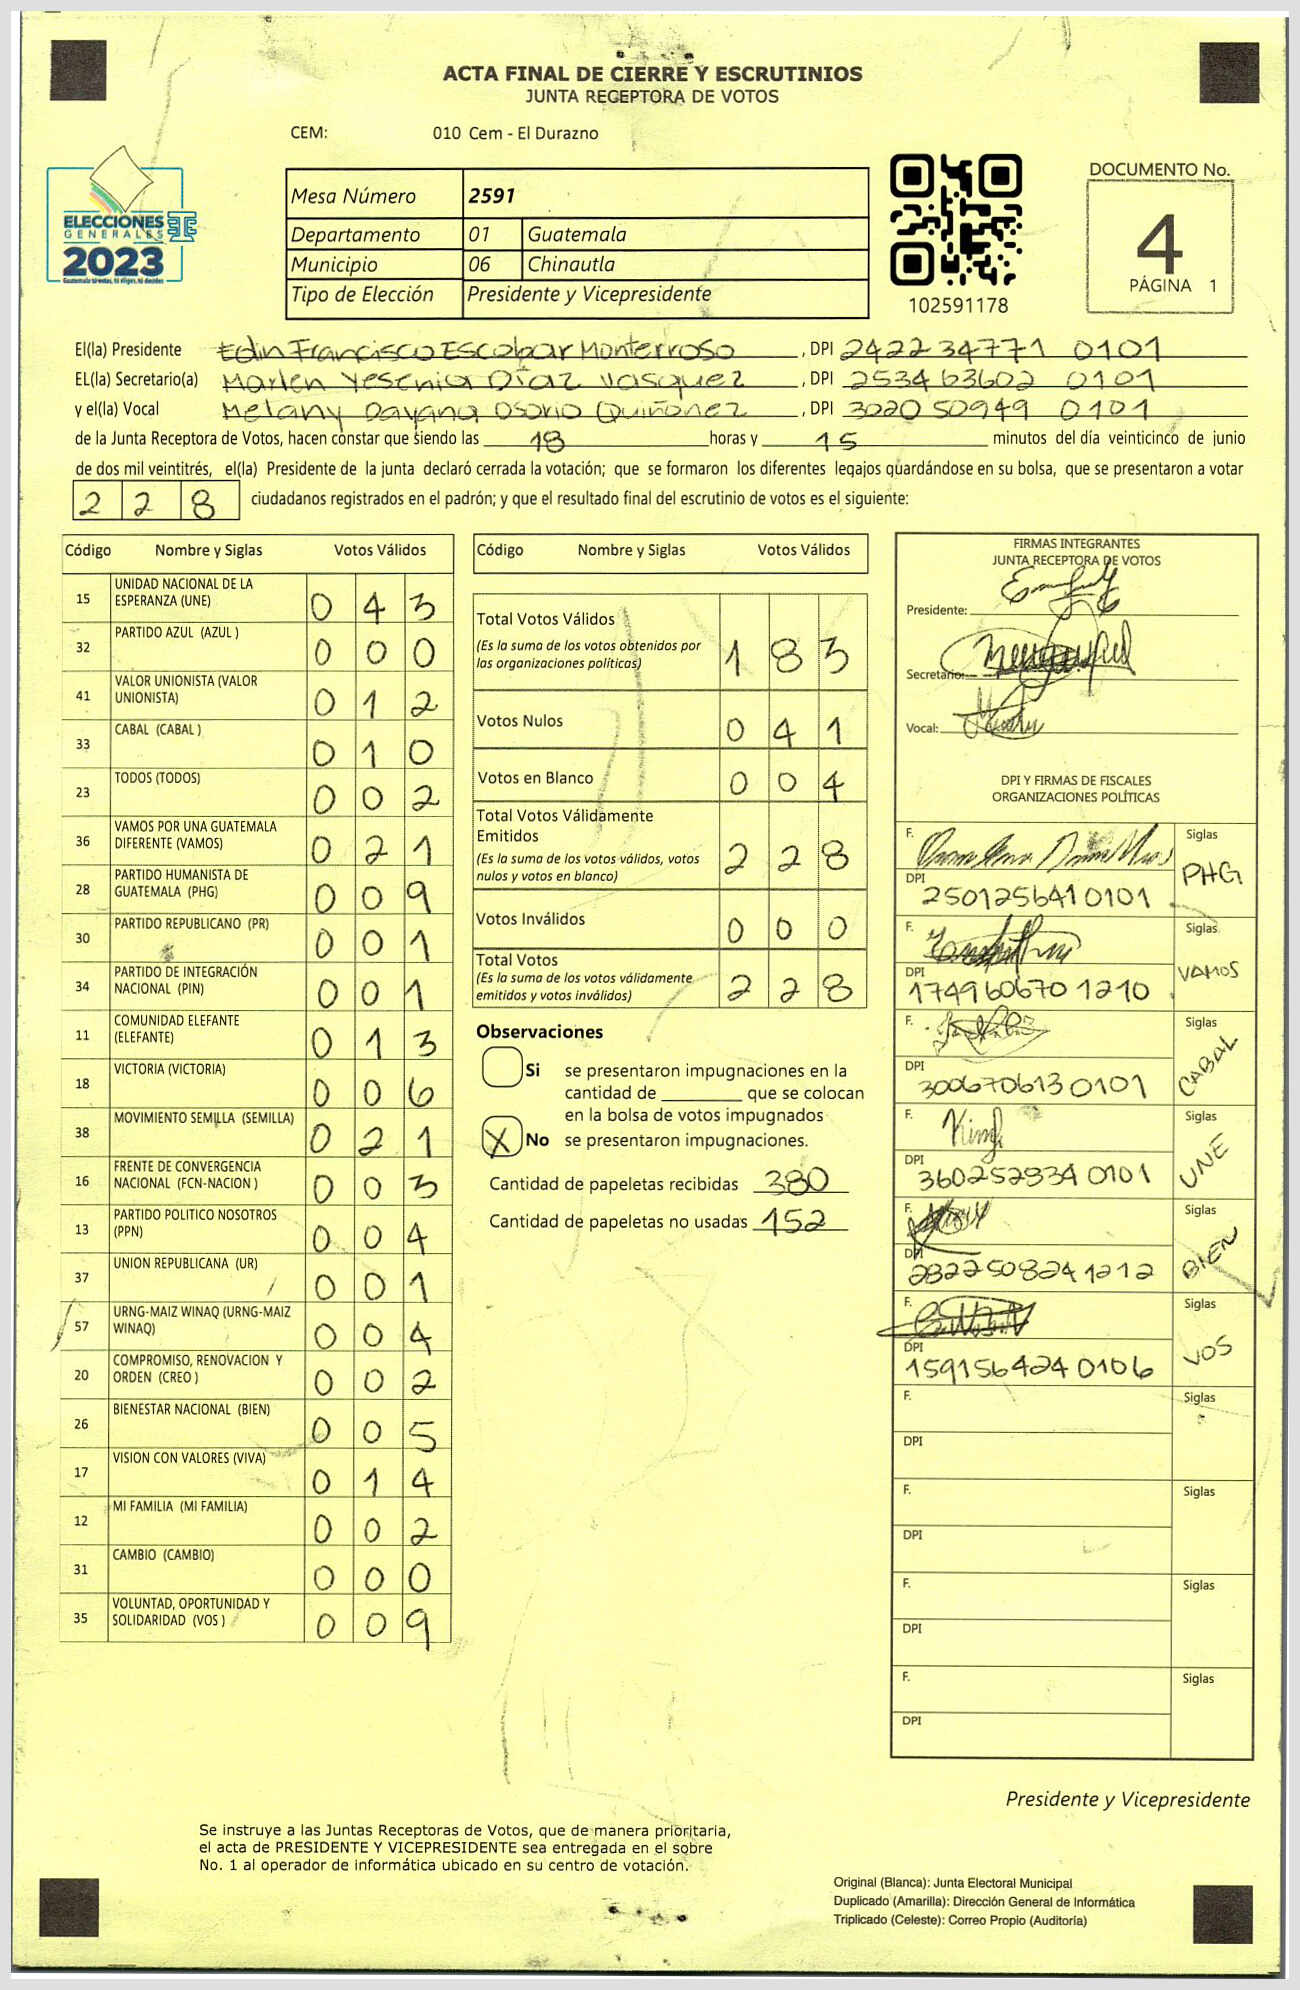 ACTA FINAL DE CIERRE Y ESCRUTINIOS
JUNTA RECEPTORA DE VOTOS
CEM: 010 Cem - El Durazno
ELECCIONES
GENERALES
2023
Guatemala tú estas, tú eliges, tú decides
Mesa Número 2591
Departamento 01 Guatemala
Municipio 06 Chinautla
Tipo de Elección Presidente y Vicepresidente
102591178
DOCUMENTO No.
4
PÁGINA 1
El(la) Presidente Edin Francisco Escobar Monterroso, DPI 2422 34771 0101
EL(la) Secretario(a) Marlen Yesenia Díaz Vasquez, DPI 2534 63602 0101
y el(la) Vocal Melany Dayana Osorio Quiñonez, DPI 3020 50949 0101
de la Junta Receptora de Votos, hacen constar que siendo las 18 horas y 15 minutos del día veinticinco de junio
de dos mil veintitrés, el(la) Presidente de la junta declaró cerrada la votación; que se formaron los diferentes legajos guardándose en su bolsa, que se presentaron a votar
2 2 8 ciudadanos registrados en el padrón; y que el resultado final del escrutinio de votos es el siguiente:
Código Nombre y Siglas Votos Válidos
15 UNIDAD NACIONAL DE LA ESPERANZA (UNE) 0 4 3
32 PARTIDO AZUL (AZUL ) 0 0 0
41 VALOR UNIONISTA (VALOR UNIONISTA) 0 1 2
33 CABAL (CABAL ) 0 1 0
23 TODOS (TODOS) 0 0 2
36 VAMOS POR UNA GUATEMALA DIFERENTE (VAMOS) 0 2 1
28 PARTIDO HUMANISTA DE GUATEMALA (PHG) 0 0 9
30 PARTIDO REPUBLICANO (PR) 0 0 1
34 PARTIDO DE INTEGRACIÓN NACIONAL (PIN) 0 0 1
11 COMUNIDAD ELEFANTE (ELEFANTE) 0 1 3
18 VICTORIA (VICTORIA) 0 0 6
38 MOVIMIENTO SEMILLA (SEMILLA) 0 2 1
16 FRENTE DE CONVERGENCIA NACIONAL (FCN-NACION ) 0 0 3
13 PARTIDO POLITICO NOSOTROS (PPN) 0 0 4
37 UNION REPUBLICANA (UR) 0 0 1
57 URNG-MAIZ WINAQ (URNG-MAIZ WINAQ) 0 0 4
20 COMPROMISO, RENOVACION Y ORDEN (CREO ) 0 0 2
26 BIENESTAR NACIONAL (BIEN) 0 0 5
17 VISION CON VALORES (VIVA) 0 1 4
12 MI FAMILIA (MI FAMILIA) 0 0 2
31 CAMBIO (CAMBIO) 0 0 0
35 VOLUNTAD, OPORTUNIDAD Y SOLIDARIDAD (VOS ) 0 0 9
Código Nombre y Siglas Votos Válidos
Total Votos Válidos 1 8 3
(Es la suma de los votos obtenidos por
las organizaciones políticas)
Votos Nulos 0 4 1
Votos en Blanco 0 0 4
Total Votos Válidamente
Emitidos 2 2 8
(Es la suma de los votos válidos, votos
nulos y votos en blanco)
Votos Inválidos 0 0 0
Total Votos 2 2 8
(Es la suma de los votos válidamente
emitidos y votos inválidos)
Observaciones
Si se presentaron impugnaciones en la
cantidad de ________ que se colocan
en la bolsa de votos impugnados
X No se presentaron impugnaciones.
Cantidad de papeletas recibidas 380
Cantidad de papeletas no usadas 152
FIRMAS INTEGRANTES
JUNTA RECEPTORA DE VOTOS
Presidente:
Secretario:
Vocal:
DPI Y FIRMAS DE FISCALES
ORGANIZACIONES POLÍTICAS
F. Siglas
DPI 250125641 0101 PHG
F. Siglas
DPI 174960670 1210 VAMOS
F. Siglas
DPI 300670613 0101 CABAL
F. Siglas
DPI 360252334 0101 UNE
F. Siglas
DPI 282250824 1212 BIEN
F. Siglas
DPI 159156424 0106 VOS
F. Siglas
DPI
F. Siglas
DPI
F. Siglas
DPI
F. Siglas
DPI
Presidente y Vicepresidente
Se instruye a las Juntas Receptoras de Votos, que de manera prioritaria,
el acta de PRESIDENTE Y VICEPRESIDENTE sea entregada en el sobre
No. 1 al operador de informática ubicado en su centro de votación.
Original (Blanca): Junta Electoral Municipal
Duplicado (Amarilla): Dirección General de Informática
Triplicado (Celeste): Correo Propio (Auditoría)